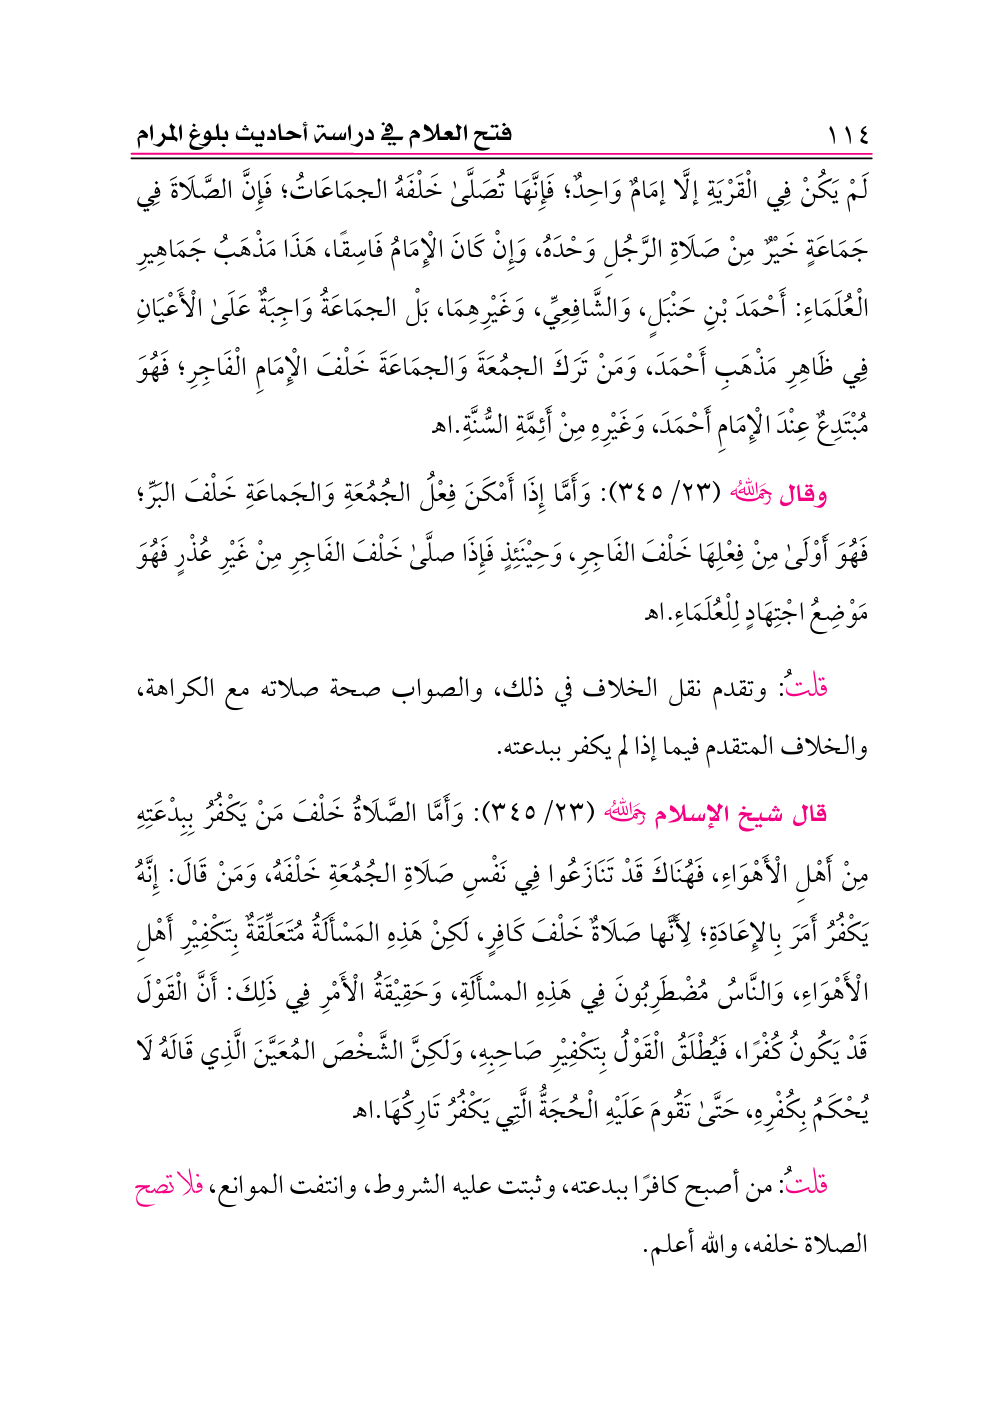 ١١٤ فتح العلام في دراسة أحاديث بلوغ المرام
لَمْ يَكُنْ فِي الْقَرْيَةِ إلَّا إمَامٌ وَاحِدٌ؛ فَإِنَّهَا تُصَلَّىٰ خَلْفَهُ الجمَاعَاتُ؛ فَإِنَّ الصَّلَاةَ فِي
جَمَاعَةٍ خَيْرٌ مِنْ صَلَاةِ الرَّجُلِ وَحْدَهُ، وَإِنْ كَانَ الْإِمَامُ فَاسِقًا، هَذَا مَذْهَبُ جَمَاهِيرِ
الْعُلَمَاءِ: أَحْمَدَ بْنِ حَنْبَلٍ، وَالشَّافِعِيِّ، وَغَيْرِهِمَا، بَلْ الجمَاعَةُ وَاجِبَةٌ عَلَىٰ الْأَعْيَانِ
فِي ظَاهِرِ مَذْهَبِ أَحْمَدَ، وَمَنْ تَرَكَ الجمُعَةَ وَالجمَاعَةَ خَلْفَ الْإِمَامِ الْفَاجِرِ؛ فَهُوَ
مُبْتَدِعٌ عِنْدَ الْإِمَامِ أَحْمَدَ، وَغَيْرِهِ مِنْ أَئِمَّةِ السُّنَّةِ.اهـ
وقال رحمه الله (٢٣/ ٣٤٥): وَأَمَّا إِذَا أَمْكَنَ فِعْلُ الجُمُعَةِ وَالجَماعَةِ خَلْفَ البَرِّ؛
فَهُوَ أَوْلَىٰ مِنْ فِعْلِهَا خَلْفَ الفَاجِرِ، وَحِيْنَئِذٍ فَإِذَا صلَّىٰ خَلْفَ الفَاجِرِ مِنْ غَيْرِ عُذْرٍ فَهُوَ
مَوْضِعُ اجْتِهَادٍ لِلْعُلَمَاءِ.اهـ
قلتُ: وتقدم نقل الخلاف في ذلك، والصواب صحة صلاته مع الكراهة،
والخلاف المتقدم فيما إذا لم يكفر ببدعته.
قال شيخ الإسلام رحمه الله (٢٣/ ٣٤٥): وَأَمَّا الصَّلَاةُ خَلْفَ مَنْ يَكْفُرُ بِبِدْعَتِهِ
مِنْ أَهْلِ الْأَهْوَاءِ، فَهُنَاكَ قَدْ تَنَازَعُوا فِي نَفْسِ صَلَاةِ الجُمُعَةِ خَلْفَهُ، وَمَنْ قَالَ: إِنَّهُ
يَكْفُرُ أَمَرَ بِالإِعَادَةِ؛ لِأَنَّها صَلَاةٌ خَلْفَ كَافِرٍ، لَكِنْ هَذِهِ المَسْأَلَةُ مُتَعَلِّقَةٌ بِتَكْفِيْرِ أَهْلِ
الْأَهْوَاءِ، وَالنَّاسُ مُضْطَرِبُونَ فِي هَذِهِ المسْأَلَةِ، وَحَقِيْقَةُ الْأَمْرِ فِي ذَلِكَ: أَنَّ الْقَوْلَ
قَدْ يَكُونُ كُفْرًا، فَيُطْلَقُ الْقَوْلُ بِتَكْفِيْرِ صَاحِبِهِ، وَلَكِنَّ الشَّخْصَ المُعَيَّنَ الَّذِي قَالَهُ لَا
يُحْكَمُ بِكُفْرِهِ، حَتَّىٰ تَقُومَ عَلَيْهِ الْحُجَةُّ الَّتِي يَكْفُرُ تَارِكُهَا.اهـ
قلتُ: من أصبح كافرًا ببدعته، وثبتت عليه الشروط، وانتفت الموانع، فلا تصح
الصلاة خلفه، والله أعلم.